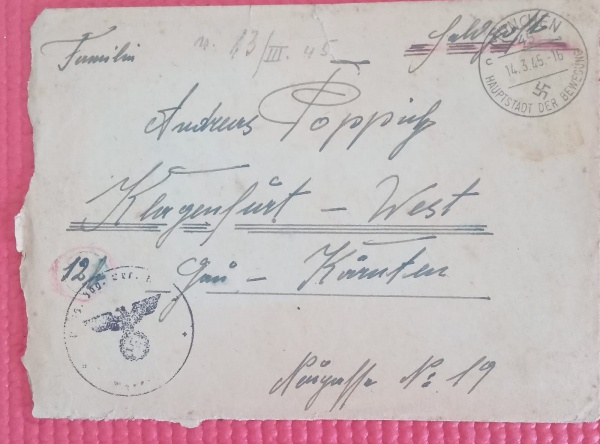 Feldpost
Familie
n. 13/III. 45
MÜNCHEN
14.3.45.-16
c
HAUPTSTADT DER BEWEGUNG
Andreas Poppich
Klagenfurt – West
12b
Gau – Kärnten
Neugasse No: 19